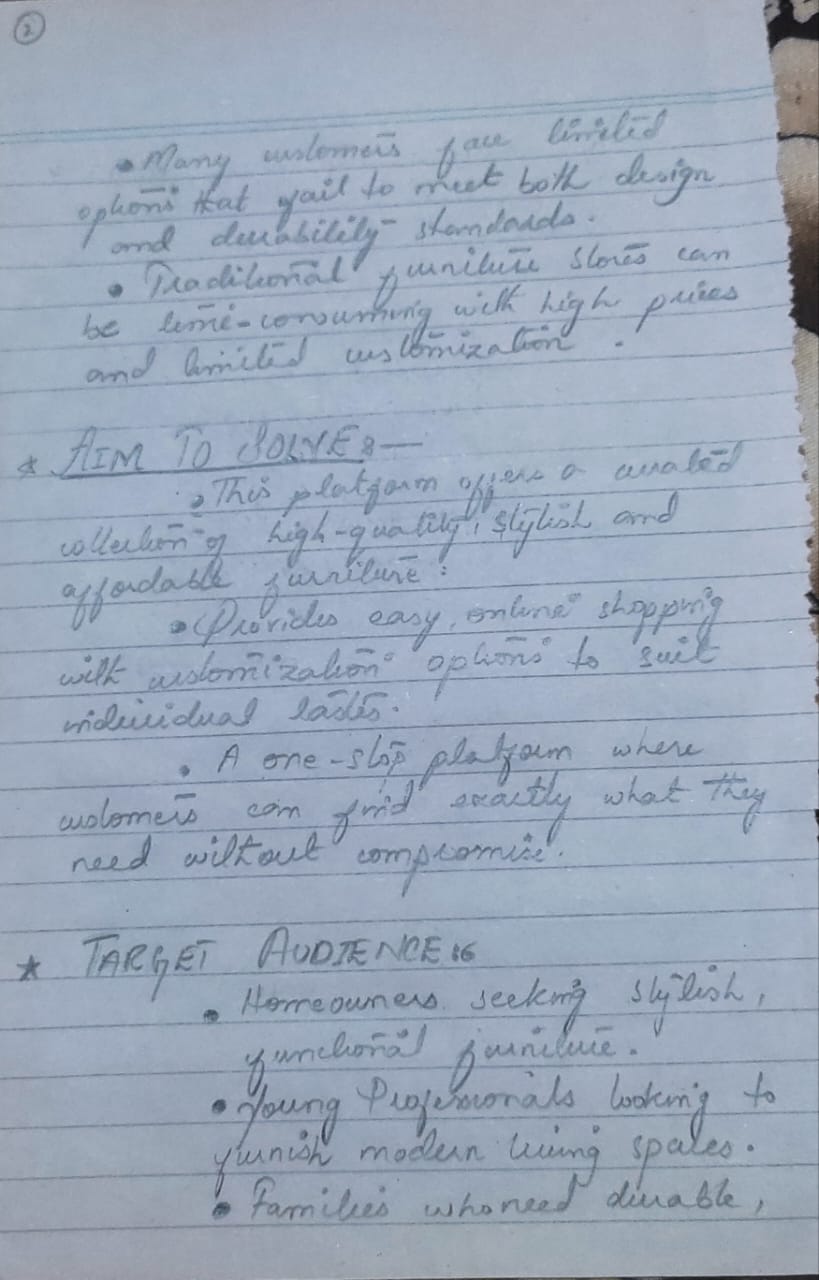 2
• Many customers face limited
options that fail to meet both design
and durability standards.
• Traditional furniture stores can
be time-consuming with high prices
and limited customization.
* AIM TO SOLVE :—
• This platform offers a curated
collection of high-quality, stylish and
affordable furniture.
• Provides easy, online shopping
with customization options to suit
individual tastes.
• A one-stop platform where
customers can find exactly what they
need without compromise.
* TARGET AUDIENCE :-
• Homeowners seeking stylish,
functional furniture.
• Young Professionals looking to
furnish modern living spaces.
• Families who need durable,